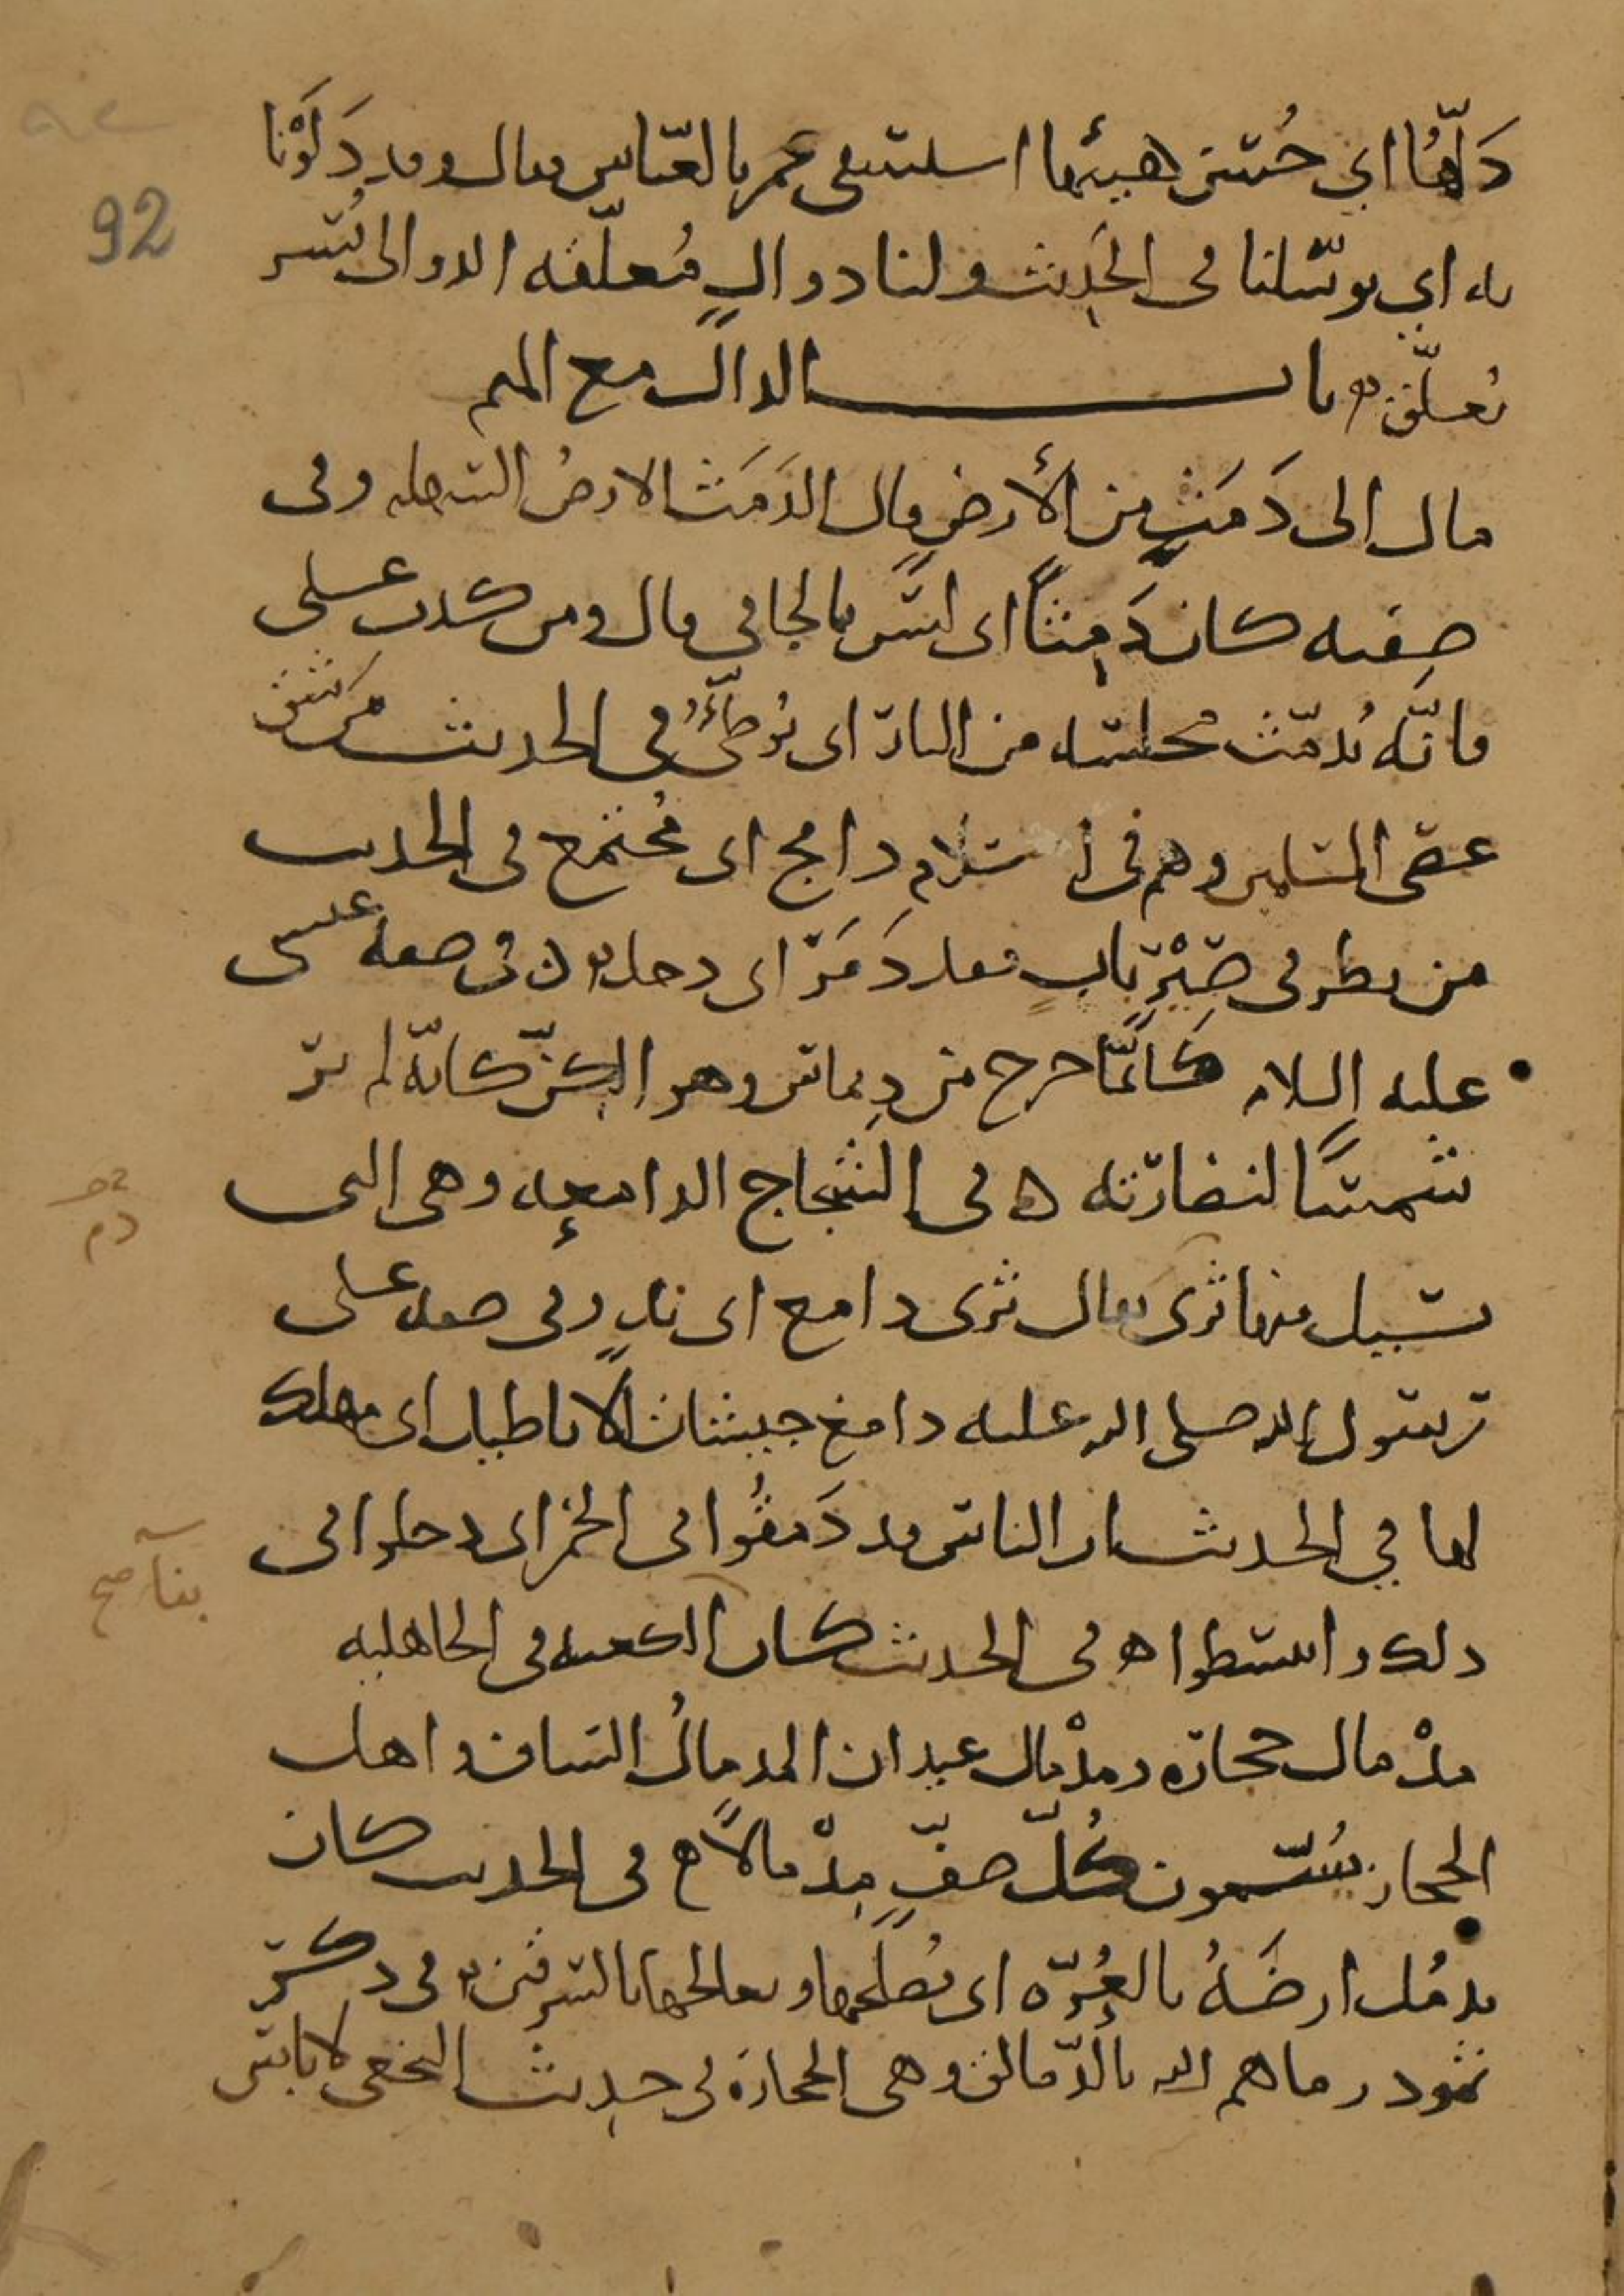 92
دَلُّها اي حُسْن هيئتها استسقى عمر بالعبّاس فقال وقد دَلَوْنا
به اي توسّلنا في الحديث ولنا دوالٍ مُعلّقة الدوالي بُسر
يُعلّق باب الدال مع الميم
مال الى دَمَثٍ من الأرض قال الدَمَث الارضُ السهله وفي
صفته كان دَمِثاً اي ليس بالجافي قال ومن كذب على
فانّه يُدمّث مجلسه من النار اي يُوطّئُ في الحديث من شق
عصى المسلمين وهم في اسلام دامج اي مُجتمع في الحديث
من نظر في صِيْرِ بابٍ فقد دَمَرَ اي دخل في صفة عيسى
عليه السلام كأنّما خرج من دِيماس وهو الكِنّ كانّه لم ير
شمساً لنضارته في الشجاج الدامِعه وهي التي
تسيل منها ثرى يقال ثرى دامع اي ندٍ وفي صفه على
رسول الله صلى الله عليه دامغ جيشات الاباطيل اي مهلك
لها في الحديث ان الناس قد دَمَقُوا في الخمر اي دخلوا في
ذلك وانبسطوا في الحديث كان الكعبه في الجاهليه
مِدْماك حجاره ومِدْماك عيدان المدماكُ الساف واهل
الحجاز يُسمّون كُلّ صفٍّ مِدْماكاً في الحديث كان
يدمُل ارضَهُ بالعُرّه اي يُصلحها ويعالجها بالسرقين في ذكر
ثمود رماهم الله بالدّمالق وهي الحجارة في حديث النخعي لا باس